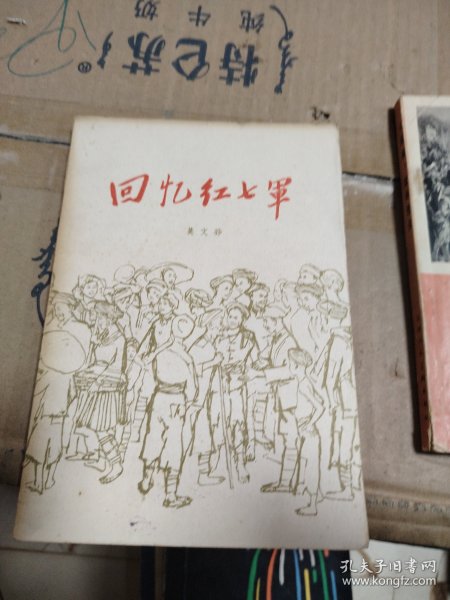 特仑苏®
纯牛奶
回忆红七軍
莫文骅
孔夫子旧书网
www.kongfz.com